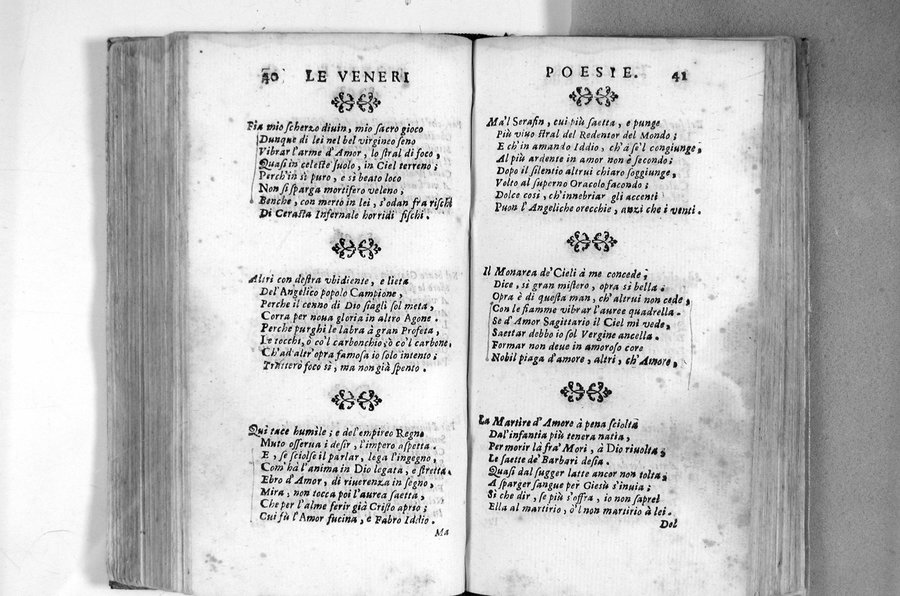 40 LE VENERI
Fia mio ſcherzo diuin, mio ſacro gioco
Dunque di lei nel bel virgineo ſeno
Vibrar l'arme d'Amor, lo ſtral di foco,
Quaſi in celeſte ſuolo, in Ciel terreno;
Perch'in sì puro, e sì beato loco
Non ſi ſparga mortifero veleno;
Benche, con merto in lei, s'odan fra riſchi
Di Ceraſta Infernale horridi fiſchi.
Altri con deſtra vbidiente, e lieta
Del'Angelico popolo Campione,
Perche il cenno di Dio ſiagli ſol meta,
Corra per noua gloria in altro Agone.
Perche purghi le labra à gran Profeta,
Le tocchi, ò co'l carbonchio, ò co'l carbone,
Ch'ad altr'opra famosa io ſolo intento;
Trattero foco sì, ma non già ſpento.
Qui tace humile; e del'empireo Regno
Muto oſſerua i deſir, l'impero aſpetta.
E, ſe ſciolſe il parlar, lega l'ingegno,
Com'hà l'anima in Dio legata, e ſtretta.
Ebro d'Amor, di riuerenza in ſegno,
Mira, non tocca poi l'aurea ſaetta,
Che per l'alme ferir già Criſto aprìo;
Cui fù l'Amor fucina, e Fabro Iddio.
Ma
POESIE. 41
Ma'l Serafin, cui più ſaetta, e punge
Più viuo ſtral del Redentor del Mondo;
E ch'in amando Iddio, ch'à ſe'l congiunge,
Al più ardente in amor non è ſecondo;
Dopo il ſilentio altrui chiaro ſoggiunge,
Volto al ſuperno Oracolo facondo;
Dolce così, ch'innebriar gli accenti
Puon l'Angeliche orecchie, anzi che i venti.
Il Monarca de' Cieli à me concede;
Dice, sì gran miſtero, opra sì bella.
Opra è di queſta man, ch'altrui non cede,
Con le fiamme vibrar l'auree quadrella.
Se d'Amor Sagittario il Ciel mi vede,
Saettar debbo io ſol Vergine ancella.
Formar non deue in amoroso core
Nobil piaga d'amore, altri, ch'Amore,
La Martire d'Amore à pena ſciolta
Dal'infantia più tenera natia,
Per morir là fra' Mori, à Dio riuolta,
Le ſaette de' Barbari deſia.
Quaſi dal ſugger latte ancor non tolta,
A ſparger ſangue per Gieſù s'inuia;
Sì che dir, ſe più s'offra, io non ſaprei
Ella al martirio, ò'l non martirio à lei.
Del